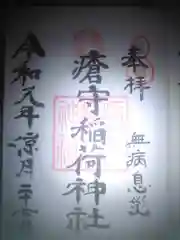 奉拝
無病息災
瘡守稲荷神社
令和元年涼月二十